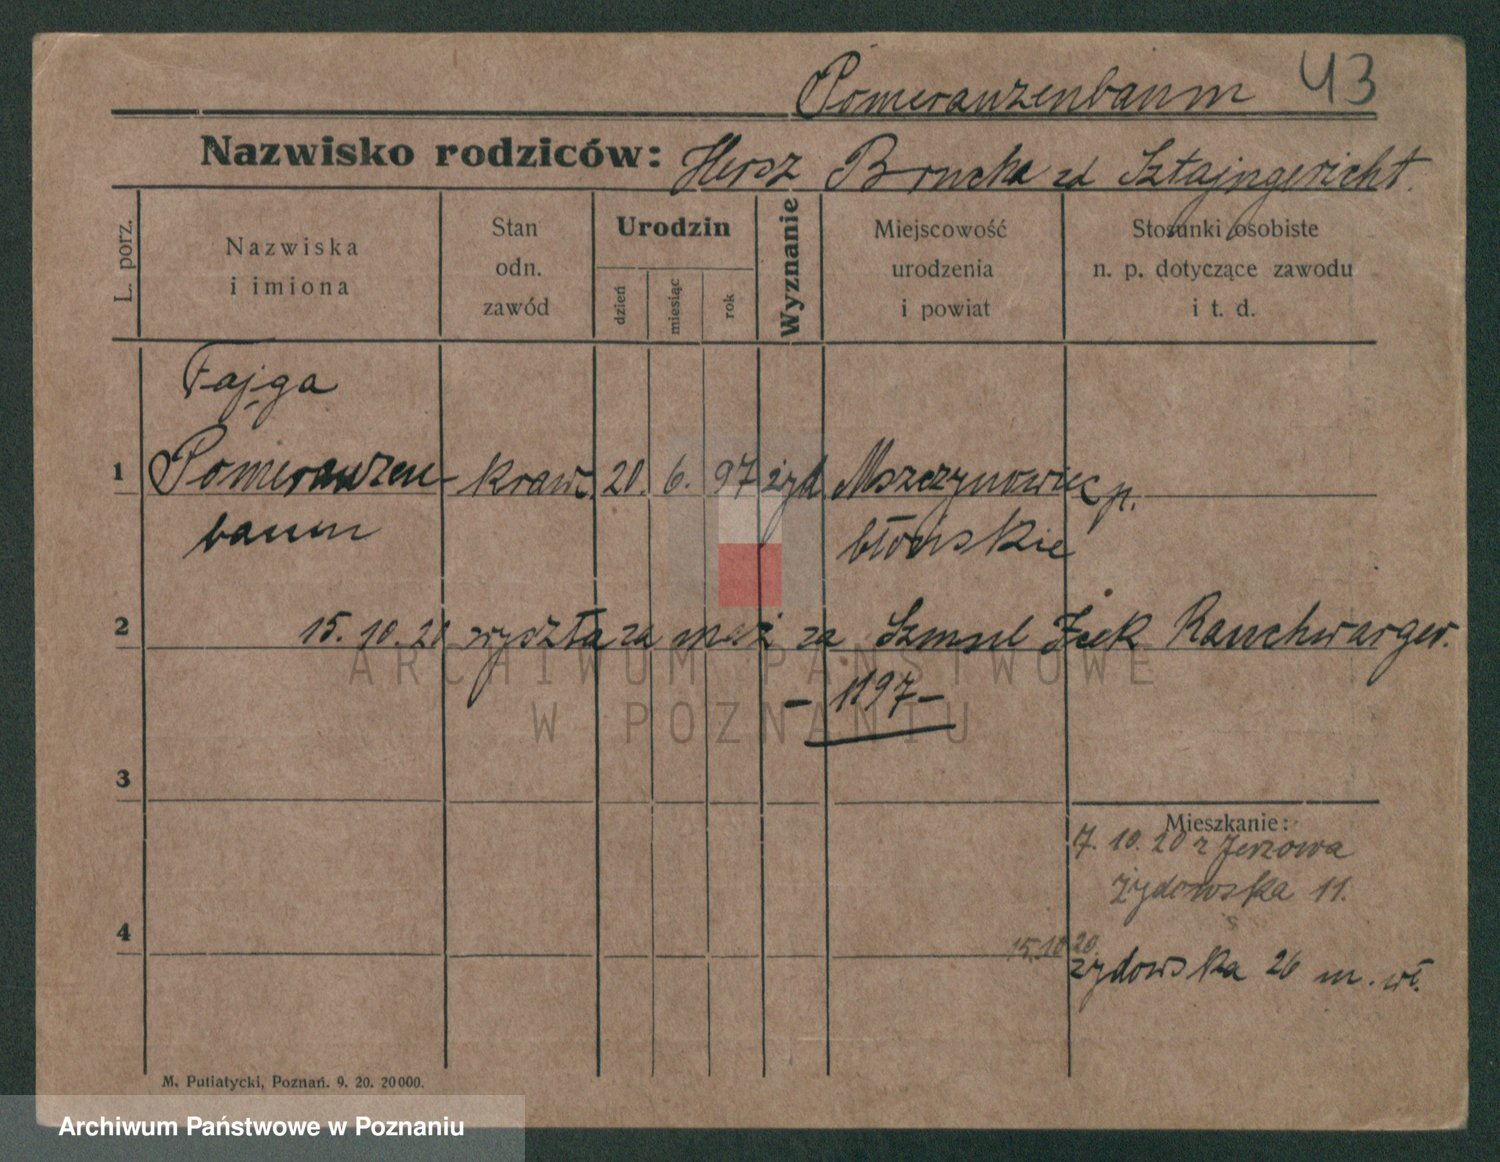 Pomeranzenbaum 43
Nazwisko rodziców: Hersz Brucha zd Sztajngericht.
L. porz.
Nazwiska
i imiona
Stan
odn.
zawód
Urodzin
dzień
miesiąc
rok
Wyznanie
Miejscowość
urodzenia
i powiat
Stosunki osobiste
n. p. dotyczące zawodu
i t. d.
Fajga
1 Pomeranzen- krawc. 20. 6. 97 żyd. Mszczynowiec p.
baum błońskie
2 15.10.20 wyszła za mąż za Szmul Icek Rauchwarger.
- 1197 -
3
Mieszkanie:
7.10.20 z Jerzowa
Żydowska 11.
4
15.10 20
żydowska 26 m. wł.
M. Putiatycki, Poznań. 9. 20. 20000.
ARCHIWUM PAŃSTWOWE
W POZNANIU
Archiwum Państwowe w Poznaniu